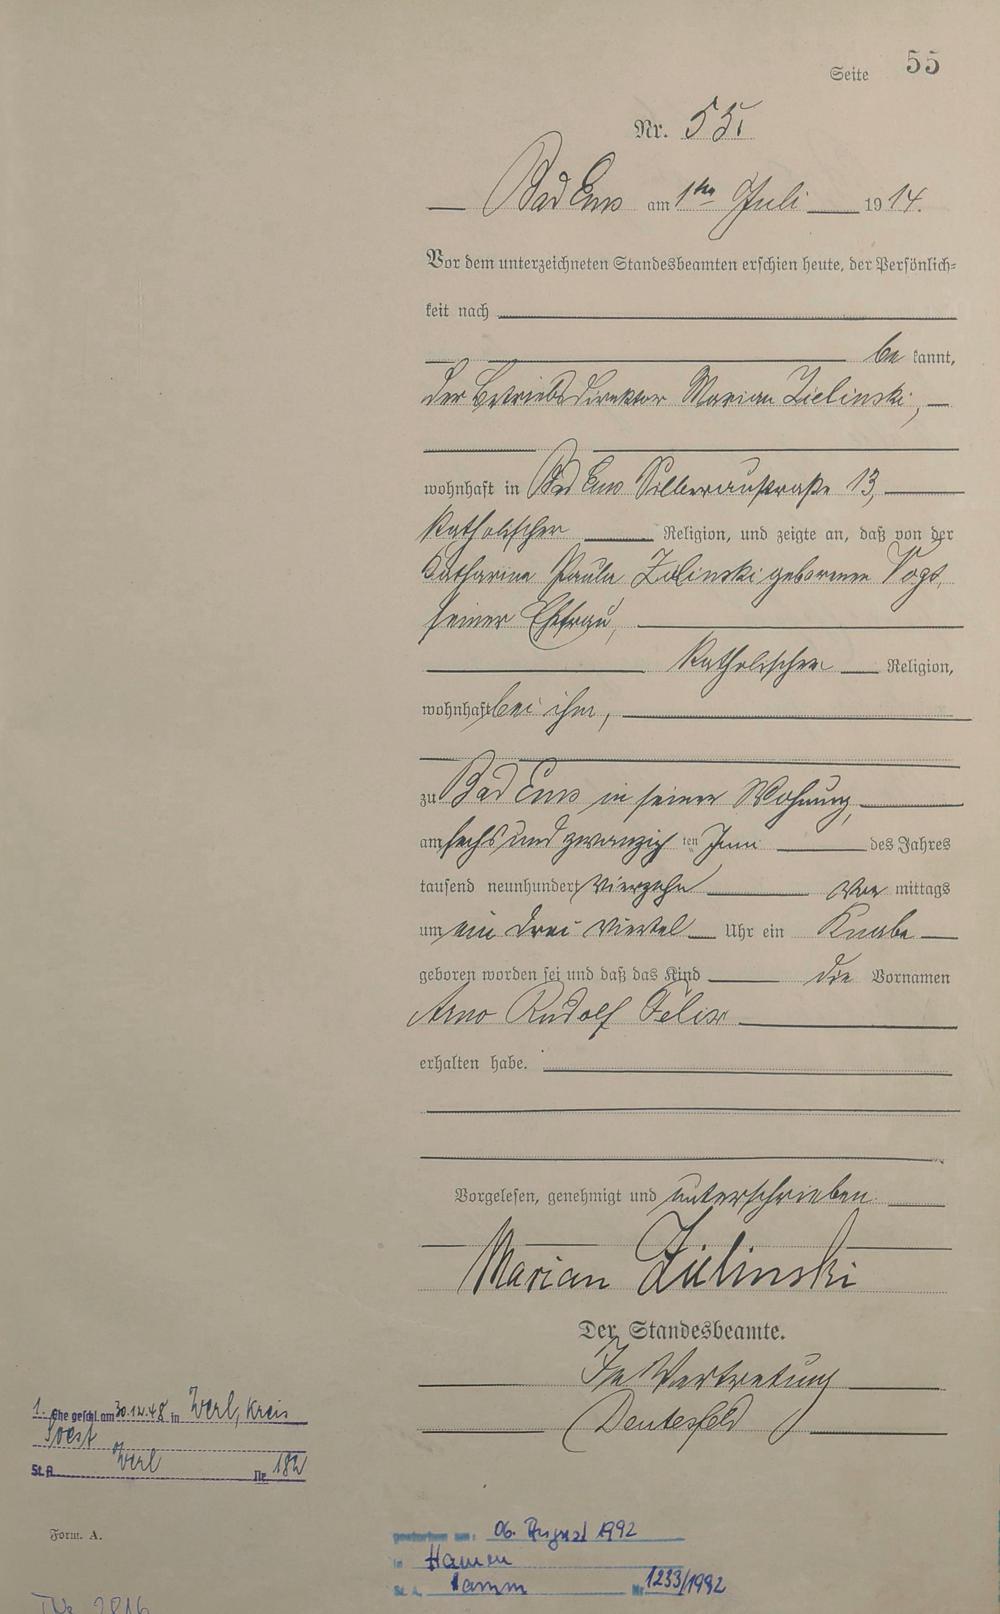 Seite 55
Nr. 55.
Bad Ems am 1ten Juli 1914.
Vor dem unterzeichneten Standesbeamten erschien heute, der Persönlich-
keit nach
be kannt,
der Betriebsdirektor Marian Zielinski,
wohnhaft in Bad Ems Silberaustraße 13,
katholischer Religion, und zeigte an, daß von der
Katharina Paula Zielinski geborenen Vogt,
seiner Ehefrau,
katholischer Religion,
wohnhaft bei ihm,
zu Bad Ems in seiner Wohnung,
am sechs und zwanzig ten Juni des Jahres
tausend neunhundert vierzehn vor mittags
um ein drei viertel Uhr ein Knabe
geboren worden sei und daß das Kind die Vornamen
Arno Rudolf Felix
erhalten habe.
Vorgelesen, genehmigt und unterschrieben
Marian Zielinski
Der Standesbeamte.
In Vertretung
Deutesfeld
1. Ehe geschl. am 30.12.48 in Werl, Kreis
Soest
St. A. Werl Nr. 182
Form. A.
gestorben am: 06. August 1992
in Hamm
St. A. Hamm Nr. 1233/1992